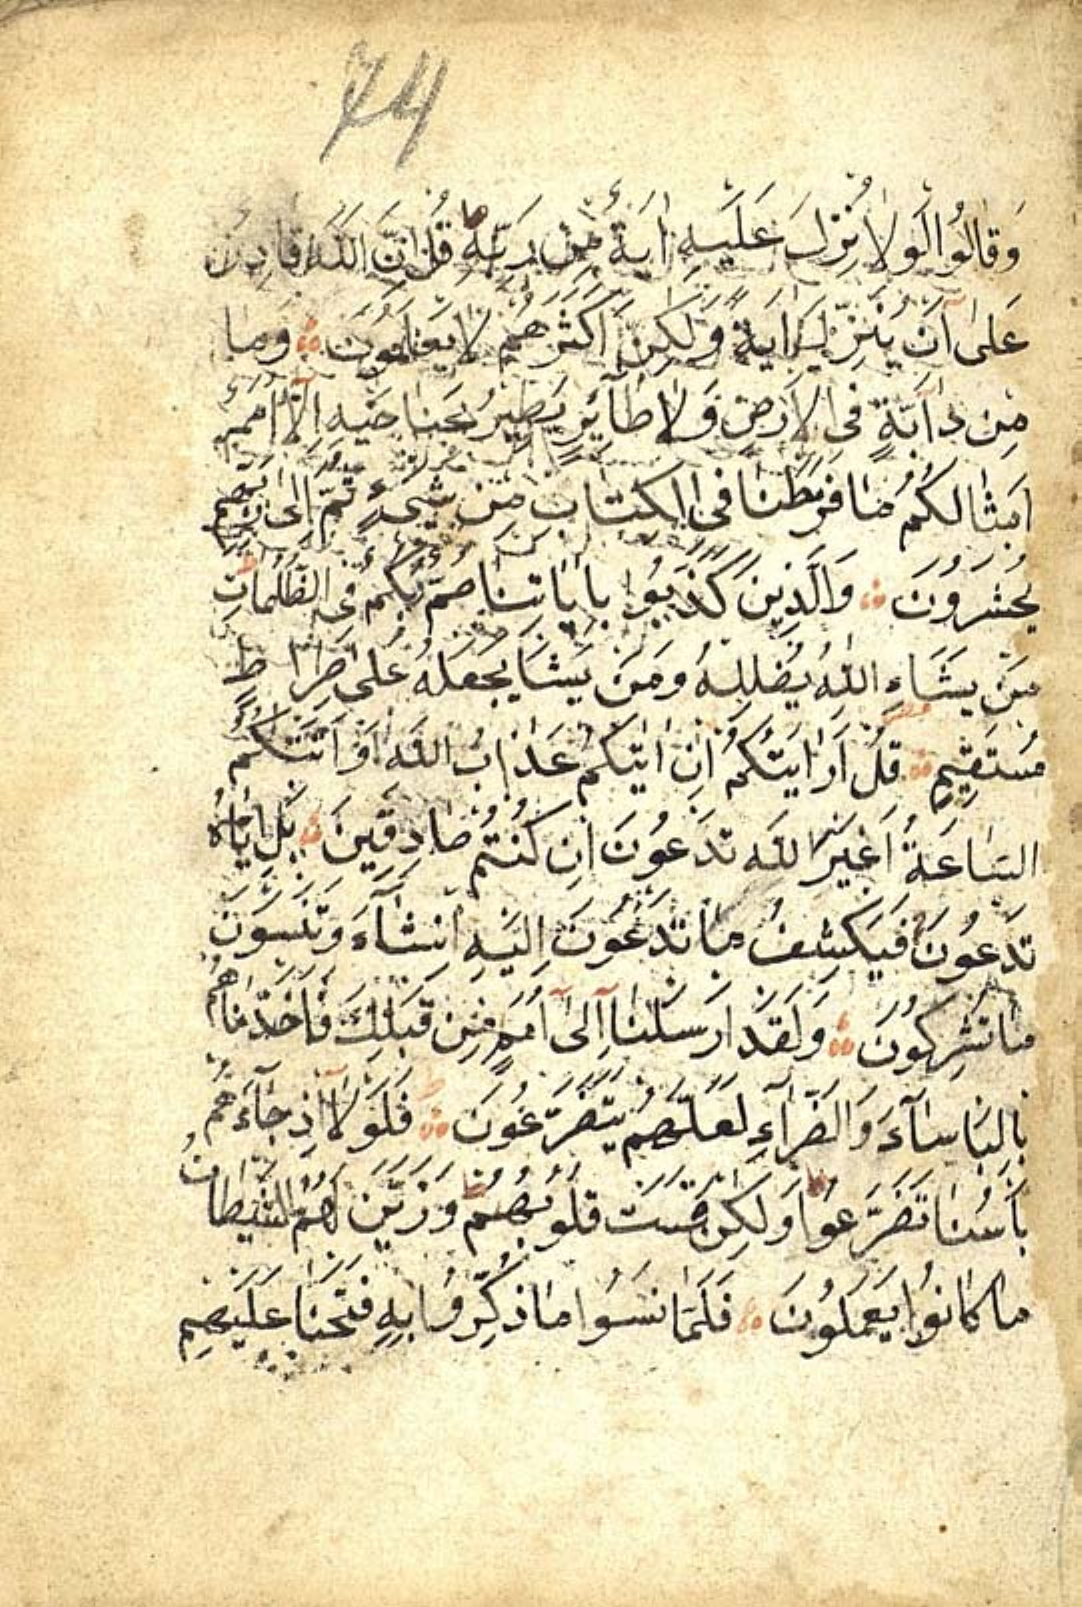 74
وَقَالُوا لَوْلَا نُزِّلَ عَلَيْهِ اٰيَةٌ مِنْ رَبِّهِ قُلْ اِنَّ اللّٰهَ قَادِرٌ
عَلٰى اَنْ يُنَزِّلَ اٰيَةً وَلٰكِنَّ اَكْثَرَهُمْ لَا يَعْلَمُونَ وَمَا
مِنْ دَابَّةٍ فِى الْاَرْضِ وَلَا طَآئِرٍ يَطِيرُ بِجَنَاحَيْهِ اِلَّا اُمَمٌ
اَمْثَالُكُمْ مَا فَرَّطْنَا فِى الْكِتَابِ مِنْ شَىْءٍ ثُمَّ اِلٰى رَبِّهِمْ
يُحْشَرُونَ وَالَّذِينَ كَذَّبُوا بِاٰيَاتِنَا صُمٌّ بُكْمٌ فِى الظُّلُمَاتِ
مَنْ يَشَاءِ اللّٰهُ يُضْلِلْهُ وَمَنْ يَشَا يَجْعَلْهُ عَلٰى صِرَاطٍ
مُسْتَقِيمٍ قُلْ اَرَاَيْتَكُمْ اِنْ اَتٰيكُمْ عَذَابُ اللّٰهِ اَوْ اَتَتْكُمُ
السَّاعَةُ اَغَيْرَ اللّٰهِ تَدْعُونَ اِنْ كُنْتُمْ صَادِقِينَ بَلْ اِيَّاهُ
تَدْعُونَ فَيَكْشِفُ مَا تَدْعُونَ اِلَيْهِ اِنْ شَآءَ وَتَنْسَوْنَ
مَا تُشْرِكُونَ وَلَقَدْ اَرْسَلْنَا اِلٰى اُمَمٍ مِنْ قَبْلِكَ فَاَخَذْنَاهُمْ
بِالْبَاْسَآءِ وَالضَّرَّآءِ لَعَلَّهُمْ يَتَضَرَّعُونَ فَلَوْلَا اِذْ جَآءَهُمْ
بَاْسُنَا تَضَرَّعُوا وَلٰكِنْ قَسَتْ قُلُوبُهُمْ وَزَيَّنَ لَهُمُ الشَّيْطَانُ
مَا كَانُوا يَعْمَلُونَ فَلَمَّا نَسُوا مَا ذُكِّرُوا بِهِ فَتَحْنَا عَلَيْهِمْ